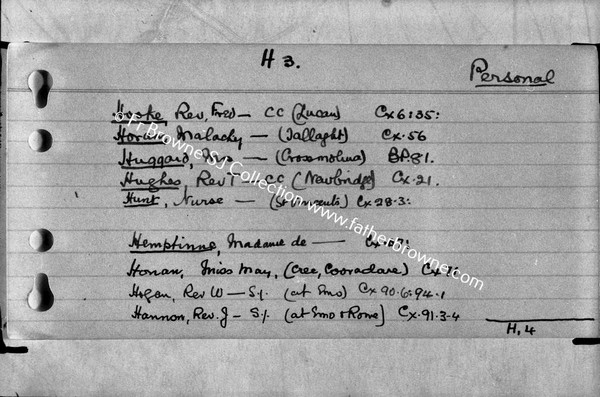 H 3.
Personal
Hooke, Rev, Fred — CC (Lucan) Cx 6:35:
Horan, Malachy — (Tallaght) Cx. 56
Huggard, — (Crossmolina) BP.81.
Hughes Rev T — CC (Newbridge) Cx. 21.
Hunt, Nurse — (St Vincents) Cx 28.3:
Hemptinne, Madame de —
Honan, Miss May, (Cree, Cooraclare)
Hogan, Rev W — S.J. (at Emo) Cx 90.6:94.1
Hannon, Rev. J — S.J. (at Emo & Rome) Cx. 91.3-4
H, 4
© Fr Browne SJ Collection www.fatherbrowne.com